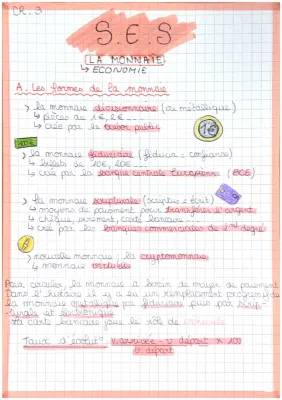 CR. 3
S.E.S
LA MONNAIE
↳ ECONOMIE
A. Les formes de la monnaie
la monnaie divisionnaire (ou métallique)
↳ pièces de 1€, 2€ ...
↳ créé par le trésor public
1€
la monnaie fiduciaire (fiducia = confiance)
↳ billets de 10€, 20€ ...
↳ créé par la banque centrale Européenne (BCE)
la monnaie scripturale (scriptus = écrit)
↳ moyens de paiement pour transférer l'argent
↳ chèque, virement, carte bancaire
↳ créé par les banques commerciales de 2nd degré
nouvelle monnaie : la cryptomonnaie
↳ monnaie virtuelle
Pour circuler, la monnaie a besoin de moyen de paiement
Dans l'histoire il y a eu un remplacement progressif de
la monnaie métallique par fiduciaire puis par scrip-
turale et électronique
La carte bancaire joue le rôle de
Taux d'évolut° = v. arrivée - v départ x 100
v départ